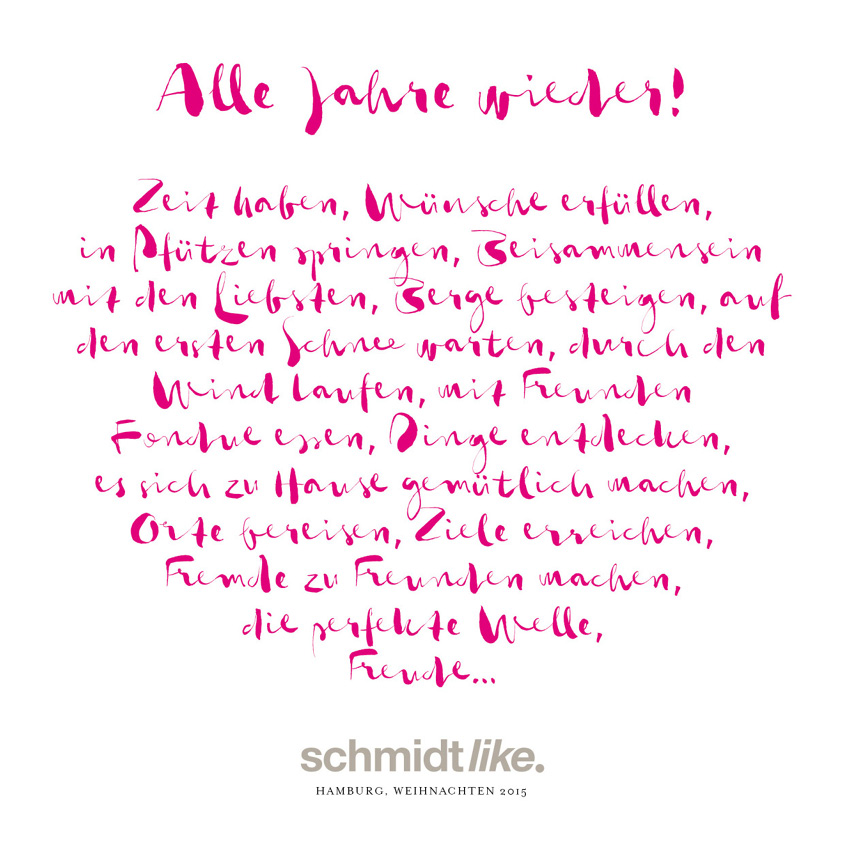 Alle Jahre wieder!
Zeit haben, Wünsche erfüllen,
in Pfützen springen, Beisammensein
mit den Liebsten, Berge besteigen, auf
den ersten Schnee warten, durch den
Wind laufen, mit Freunden
Fondue essen, Dinge entdecken,
es sich zu Hause gemütlich machen,
Orte bereisen, Ziele erreichen,
Fremde zu Freunden machen,
die perfekte Welle,
Freude...
schmidt like.
HAMBURG, WEIHNACHTEN 2015